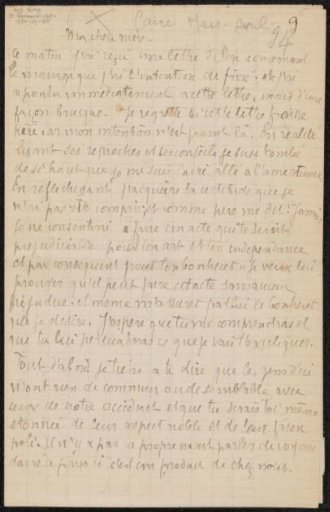 Caire Mars Avril 94
9
Ma chère mère.
Ce matin j'ai reçu une lettre de Père concernant
le mariage que j'ai l'intention de faire; et j'ai
répondu immédiatement à cette lettre, mais d'une
façon brusque. Je regrette si cette lettre froisse
père car mon intention n'est point là. En réalité
lisant ses reproches et ses conseils je suis tombé
de si haut que je me suis laissé allé à l'amertume
En réfléchissant j'acquière la certitude que je
n'ai pas été compris; et comme père me dit: Jamais
je ne consentirai à faire un acte qui te serait
préjudiciable pour ton art et ton indépendance
et par conséquent pour ton bonheur: Je veux lui
prouver qu'il peut faire cet acte sans aucun
préjudice; et même m'assurer par lui le bonheur
que je désire. J'espère que tu me comprendras et
que tu lui persuaderas ce que je vais t'expliquer.
Tout d'abord je tiens à te dire que les gens d'ici
n'ont rien de commun ou de semblable avec
ceux de notre occident et que tu serais toi même
étonnée de leur aspect noble et de leur façon
polie. Il n'y a pas à proprement parler de voyou
dans ce pays ci c'est un produit de chez nous.